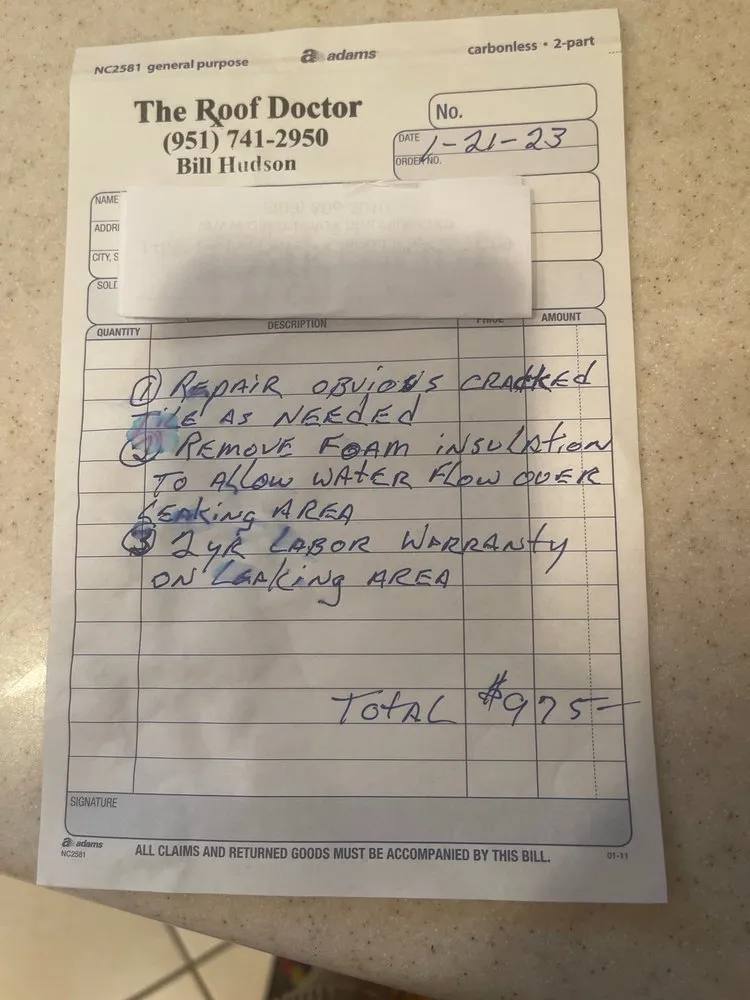 NC2581 general purpose
adams
carbonless • 2-part
The Roof Doctor
(951) 741-2950
Bill Hudson
No.
DATE 1-21-23
ORDER NO.
NAME
ADDR
CITY, S
SOL
QUANTITY DESCRIPTION PRICE AMOUNT
① REPAIR OBVIOUS CRACKED
TILE AS NEEDED
② REMOVE FOAM INSULATION
TO ALLOW WATER FLOW OVER
LEAKING AREA
③ 2 YR LABOR WARRANTY
ON LEAKING AREA
TOTAL $975-
SIGNATURE
adams
NC2581
ALL CLAIMS AND RETURNED GOODS MUST BE ACCOMPANIED BY THIS BILL.
01-11